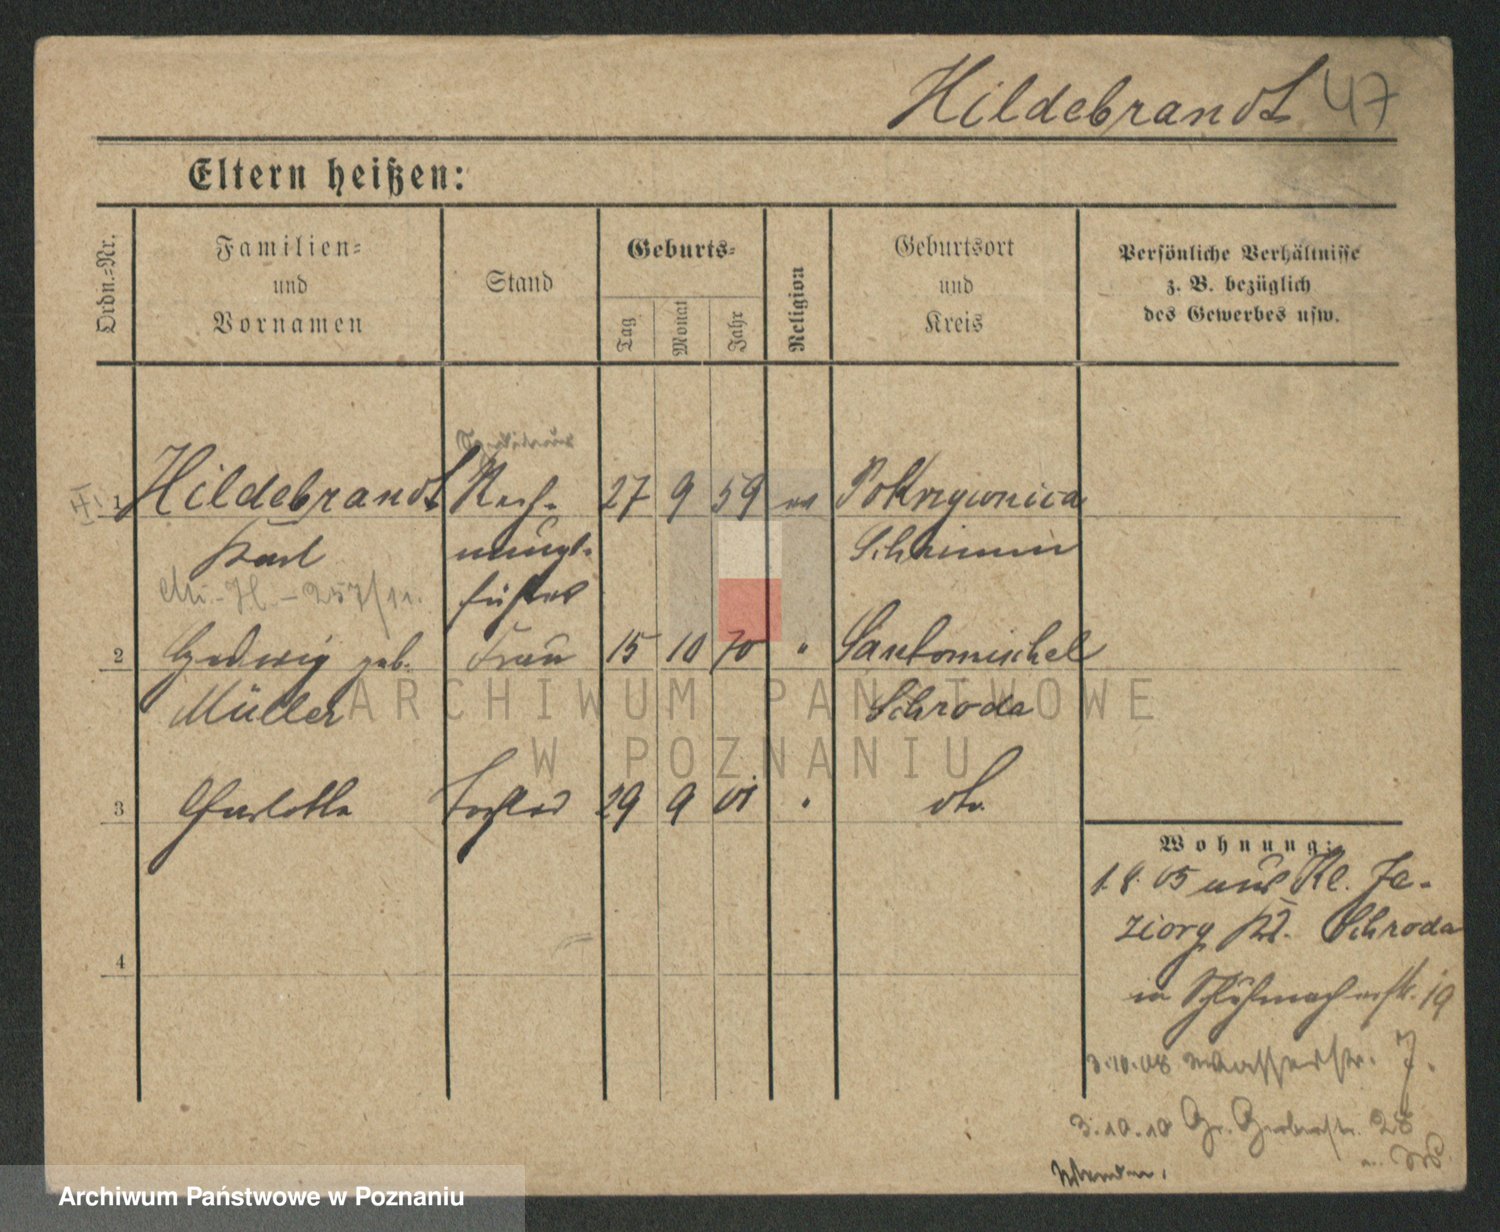 Hildebrandt 47
Eltern heißen:
Ordn.=Nr.
Familien=
und
Vornamen
Stand
Geburts=
Tag
Monat
Jahr
Religion
Geburtsort
und
Kreis
Persönliche Verhältnisse
z. B. bezüglich
des Gewerbes usw.
1 Hildebrandt Rech- 27 9 59 ev Pokrzywnica
Karl nungs- Schrimm
257/11. führer
2 Hedwig geb. Frau 15 10 70 " Santomischel
Müller Schroda
3 Charlotte Tochter 29 9 01 " do.
4
Wohnung:
1.8.05 aus Kl. Je-
ziory Kr. Schroda
in Schuhmacherstr. 19
3.10.08 Wasserstr. 7.
3.10.10 Gr. Gerberstr. 28
ARCHIWUM PAŃSTWOWE
W POZNANIU
Archiwum Państwowe w Poznaniu